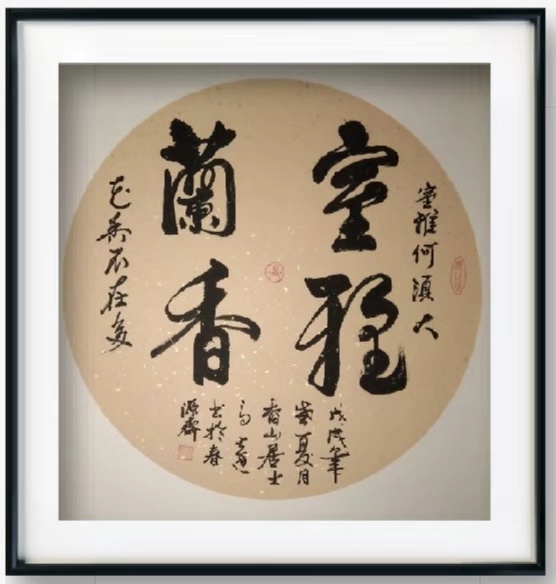 室雅何須大
室雅
蘭香
花香不在多
戊戌
夏月
香山居士
书於春